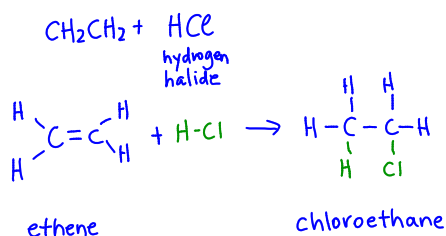 CH2CH2 + HCl
hydrogen
halide
H H H H
C=C + H-Cl → H-C-C-H
H H H Cl
ethene chloroethane